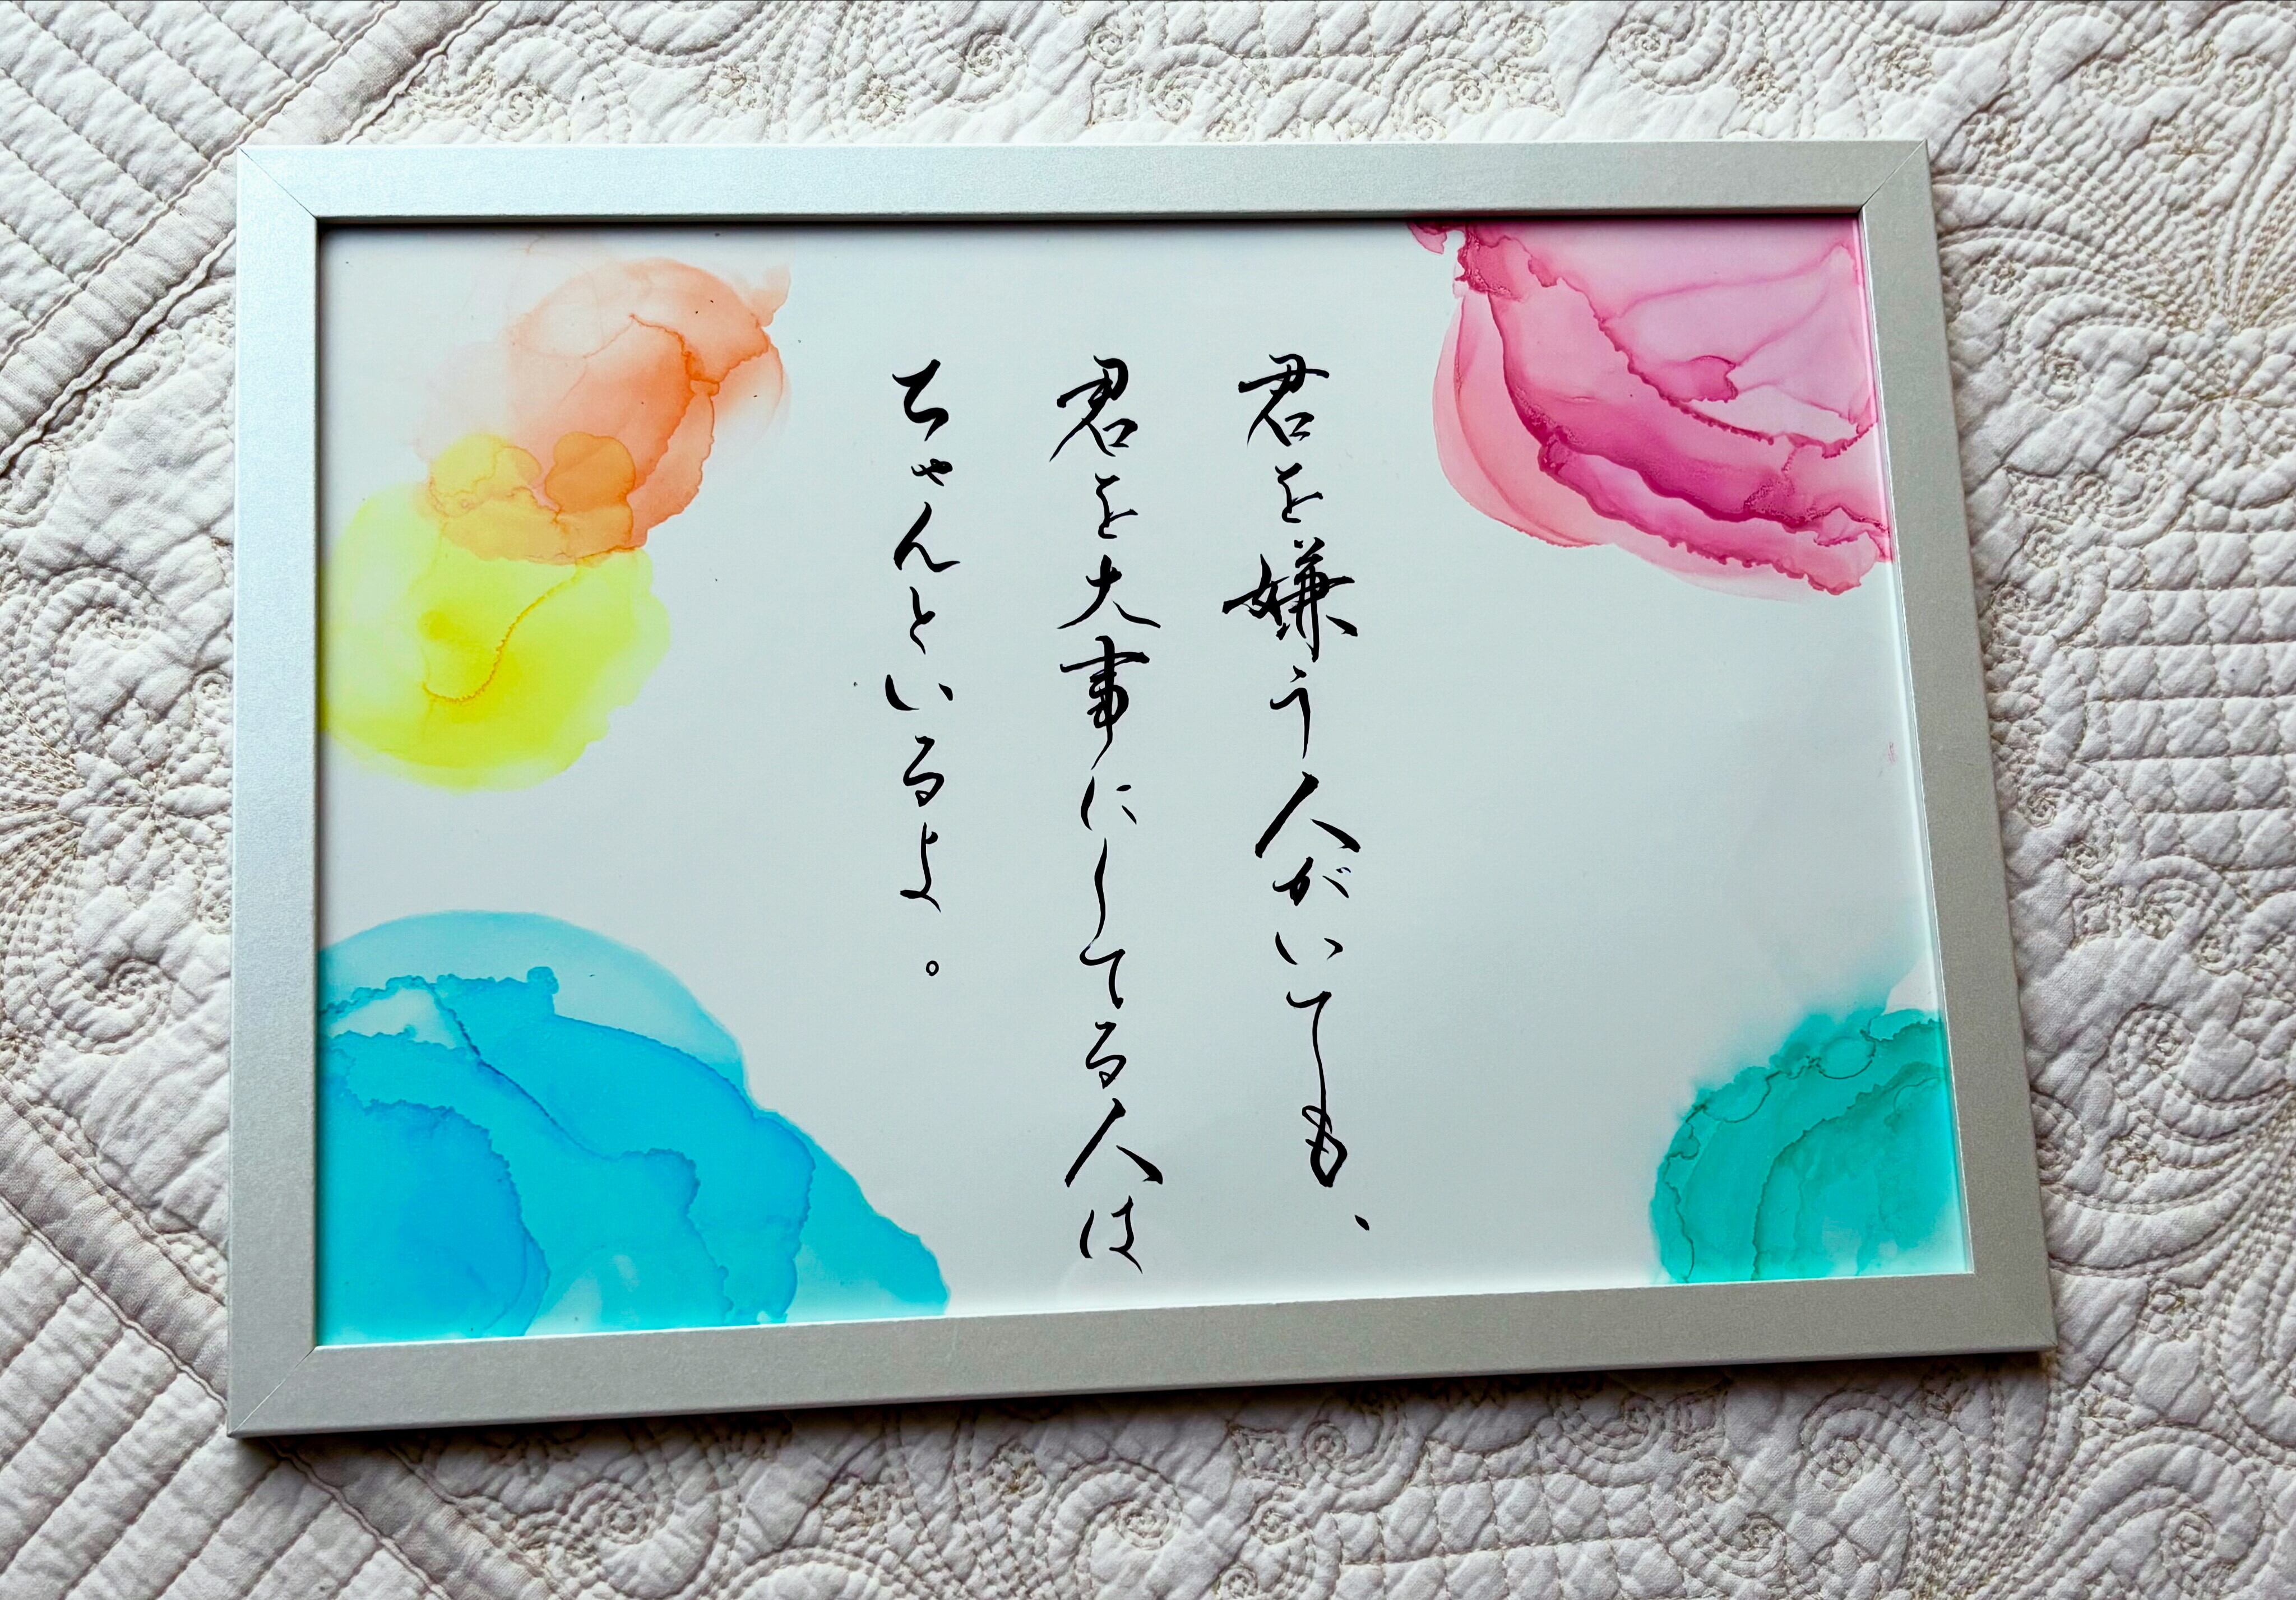 君を嫌う人がいても、
君を大事にしてる人は
ちゃんといるよ。